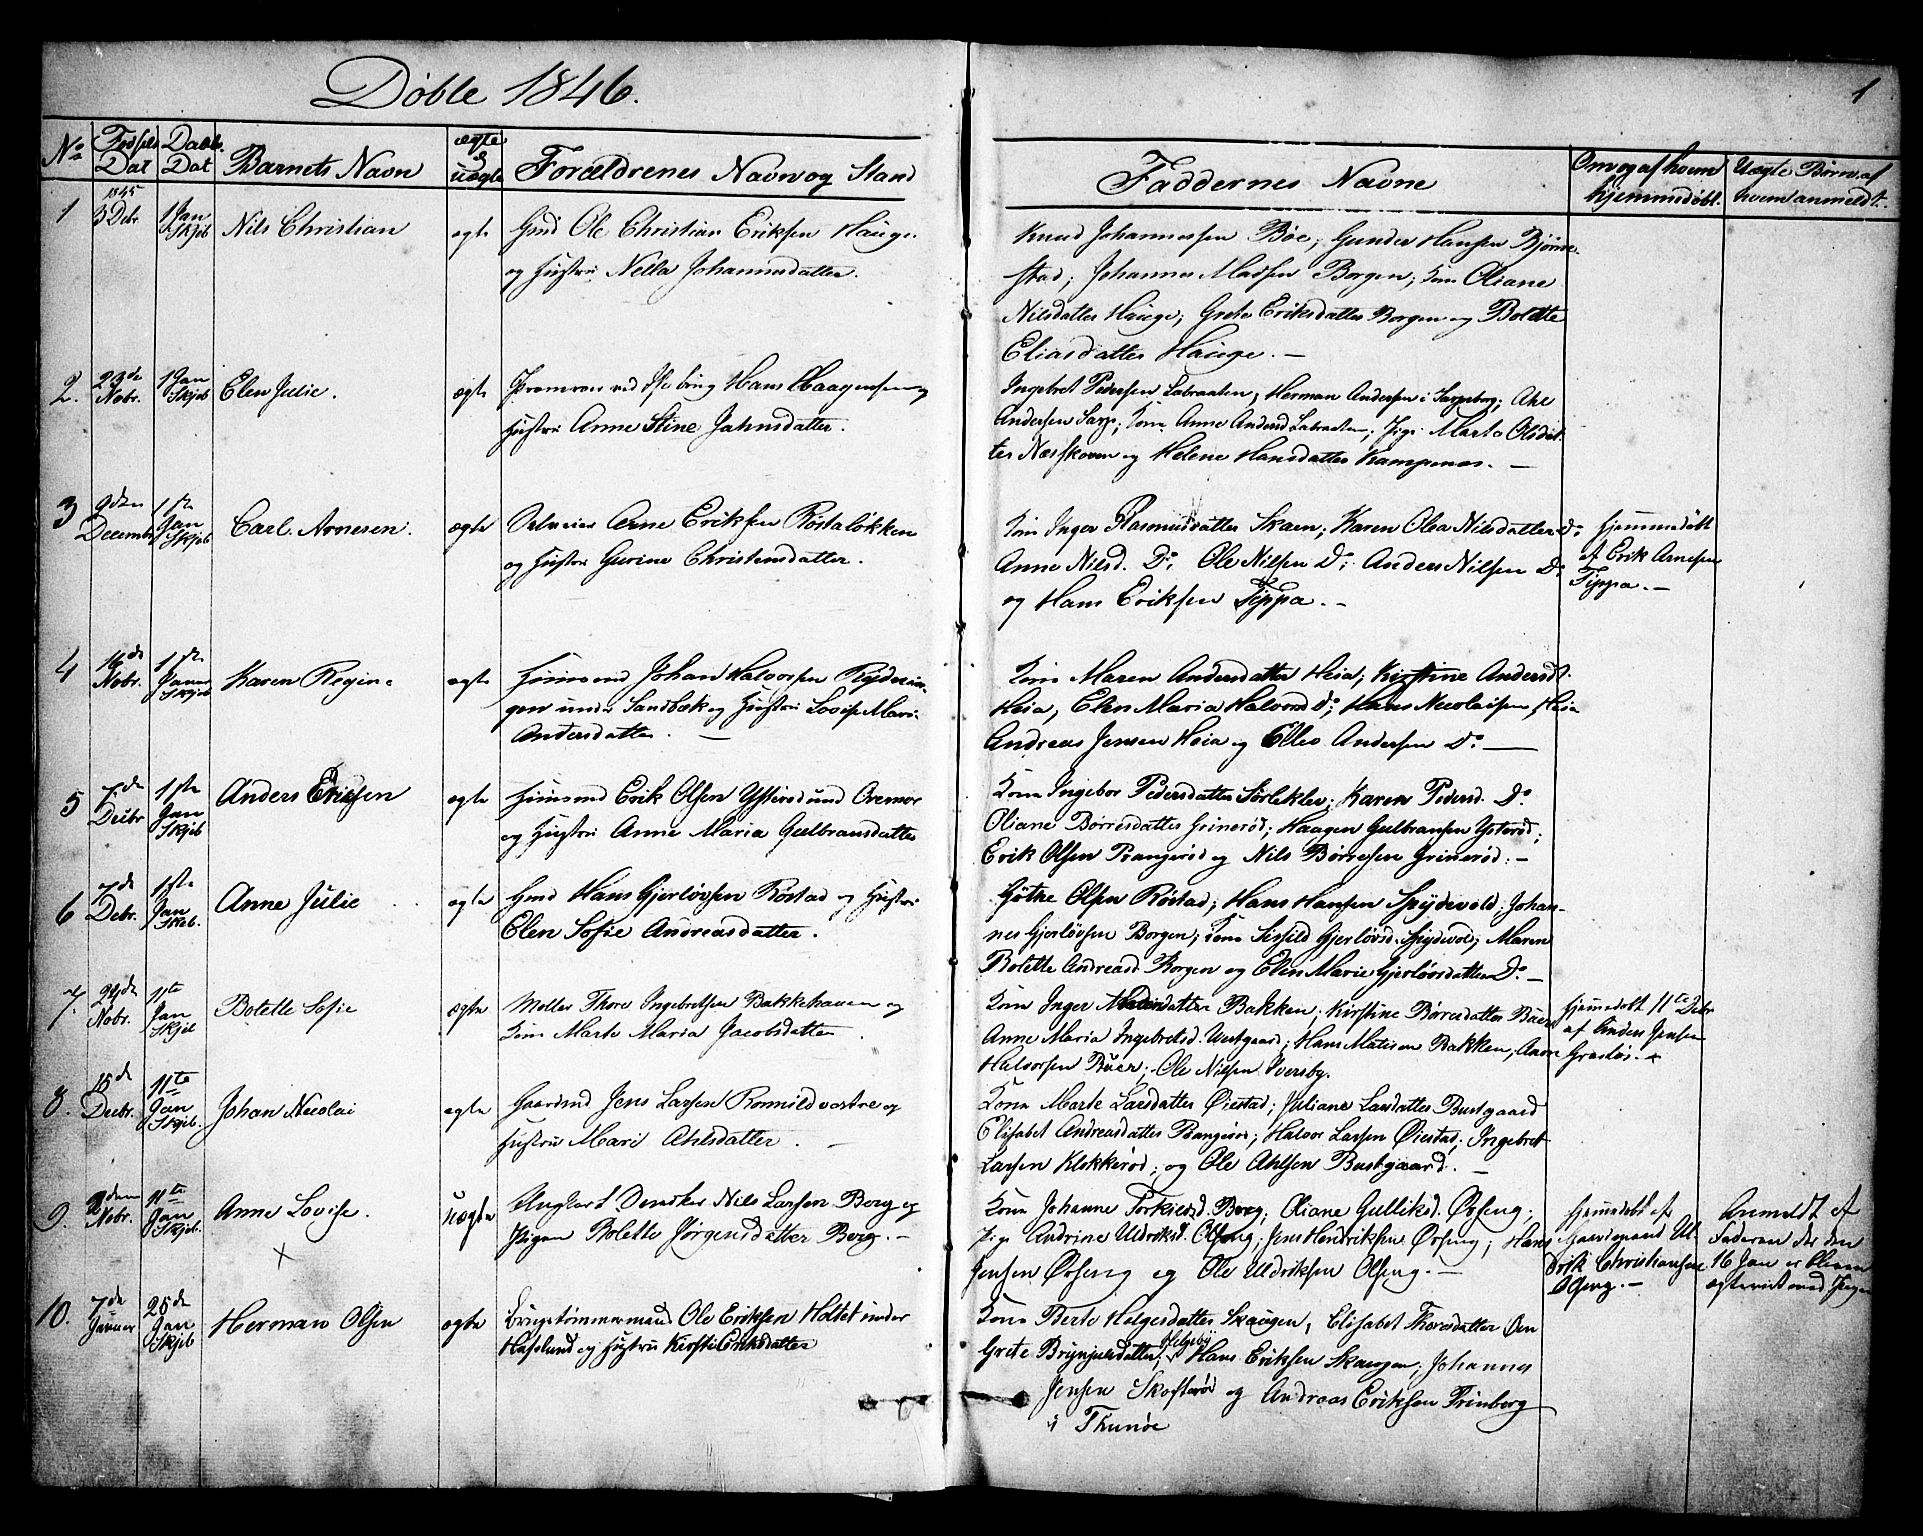 Døbte 1846.
1
No Fødsels Dat Daabs Dat Barnets Navn ægte & uægte Forældrenes Navn og Stand
Faddernes Navne Om og af hvem hjemmedøbt. Uægte Børn af hvem anmeldt.
1 1845 3 Debr. 1 Jan Skjeb Nils Christian ægte Gmd Ole Christian Eriksen Hauge
og Hustru Nella Johannesdatter.
Knud Johannessen Bøe; Gunder Hansen Bjørne-
stad; Johannes Madsen Borgen; Kone Oliane
Nilsdatter Hauge; Grete Eriksdatter Borgen og Bolette
Eliasdatter Hauge. —
2. 23de Nobr. 1 Jan Skjeb Elen Julie. ægte Hans Haagensen og
Hustru Anne Stine Jahnsdatter.
Ingebret Pedersen Labraaten; Herman Andersen i Sarpsborg; Ahle
Andersen Sarp; Kone Anne Andersd Labraaten; Pige Marte Olsdat-
ter Næsskoven og Helene Hansdatter Kampenes. —
3 9den Decembr 1ste Jan Skjeb Carl Arnesen. ægte Selveier Arne Eriksen Røstaløkken
og Hustru Gurine Christensdatter.
Kone Inger Rasmusdatter Skaen; Karen Olea Nilsdatter Do
Anne Nilsd. Do; Ole Nilsen Do; Anders Nilsen Do;
og Hans Eriksen Tippa. —
Hjemmedøbt
af Erik Arnesen
Tippa. —
4 16de Nobr. 1ste Januar Skjeb Karen Regine ægte Huusmd Johan Halvorsen Rydnin-
gen under Sandbæk og Hustru Lovise Marie
Andersdatter. —
Kone Maren Andersdatter Heia; Kirstine Andersd.
Heia; Elen Maria Halvorsd Do; Hans Nicolaisen Heia
Andreas Jensen Heia og Elleo Andersen Do —
5 7de Debr 1ste Jan Skjeb Anders Eriksen ægte Huusmd Erik Olsen Ysterød und Oremor
og Hustru Anne Maria Gulbransdatter
Kone Ingebor Pedersdatter Sørleklev; Karen Pedersd. Do
Oliane Børresdatter Grinerød; Haagen Gulbransen Ysterød;
Erik Olsen Bangerød og Nils Børresen Grinerød. —
6 7de Debr. 1ste Jan Skeb. Anne Julie ægte Gmd Hans Gjerløvsen Røstad og Hustru
Elen Sofie Andreasdatter.
Gøtke Olsen Røstad; Hans Hansen Spydevold; Johan-
nes Gjerløvsen Borgen; Kone Sissild Gjerløvsd. Spydevol; Maren
Bolette Andreasd. Borgen og Elen Marie Gjerløvsdatter Do —
7. 24de Nobr. 11te Jan Skjeb Bolette Sofie ægte Møller Thore Ingebretsen Bakkehaven og
Kone Marte Maria Jacobsdatter
Kone Inger Madsdatter Bakken; Kirstine Børresdatter Buer
Anne Maria Ingebretsd. Westgaard; Hans Matisen Bakken; Aron
Halvorsen Buer; Ole Nilsen Iversby.
Hjemmedøbt 11te Debr
af Anders Jensen
8. 15de Decbr. 11te Jan Skjeb. Johan Nicolai ægte Gaardmd Jens Larsen Romild vestre og
Hustru Mari Ahlsdatter. —
Kone Marte Larsdatter Øiestad; Juliane Larsdatter Bustgaard
Elisabet Andreasdatter Bangerød; Halvor Larsen Øiestad; Ingebret
Larsen Klokkerød; og Ole Ahlsen Bustgaard. —
9. Nobr. 11te Jan Skjeb. Anne Lovise. uægte Ungkarl Nils Larsen Borg og
Pigen Bolette Jørgensdatter Borg. —
Kone Johanne Torkieldsd. Borg; Oliane Gulliksd. Opseng;
Pige Andrine Uldriksd. Olseng; Jens Hendriksen Opseng; Hans
Jensen Opseng og Ole Uldriksen Olseng. —
Hjemmedøbt af
Gaardmand Ul-
drik Christiansen
Olseng. —
Anmeldt af
Faderen der den
16 Jan er bleven
ægteviet med Pigen
10. 7de Januar 25de Jan Skjeb Herman Olsen ægte Brugstømmermand Ole Eriksen Holtet under
Hafslund og Hustru Kirsti Eriksdatter
Kone Berte Helgesdatter Skaugen; Elisabet Thoresdatter Øen
Grete Brynjulsdatter Helgeby; Hans Eriksen Skaugen; Johannes
Jensen Skofterød og Andreas Eriksen Trinborg
i Thunøe